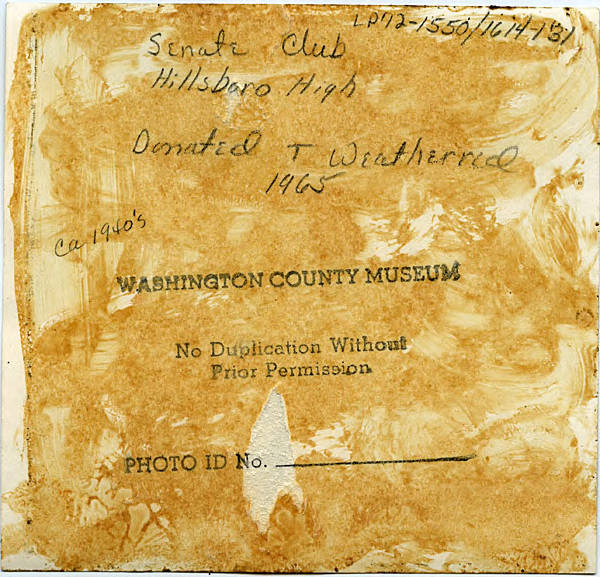 LP72-1550/1614-131
Senate Club
Hillsboro High
Donated T Weatherred
1965
Ca 1940's
WASHINGTON COUNTY MUSEUM
No Duplication Without
Prior Permission
PHOTO ID No.